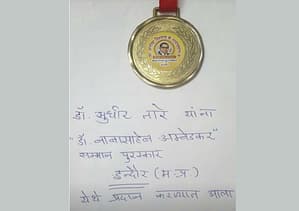 डॉ. सुधीर तारे यांना
"डॉ. बाबासाहेब अम्बेडकर"
सम्मान पुरस्कार
इन्दौर (म.प्र)
येथे प्रदान करण्यात आला